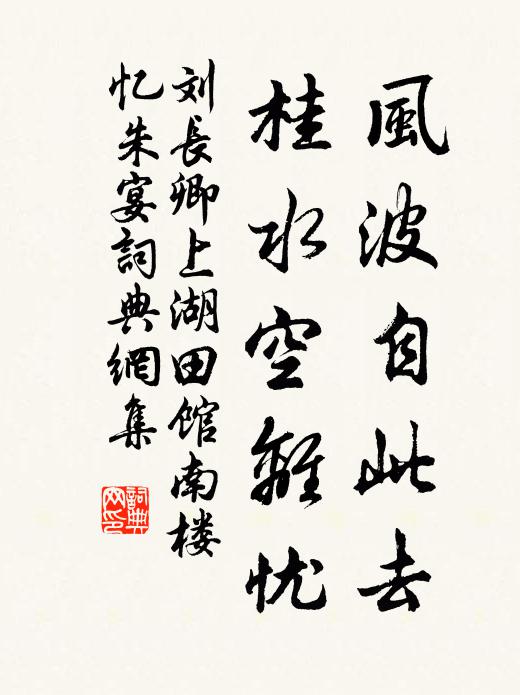 風波自此去
桂水空離忧
刘長卿上湖田館南楼
忆朱宴詞典網集
詞典
网印